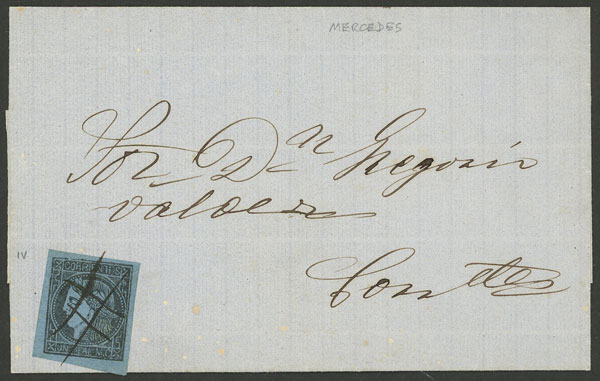 MERCEDES
Sor. Dn Gregorio
Valdez
IV
Corrtes
CORRIENTES